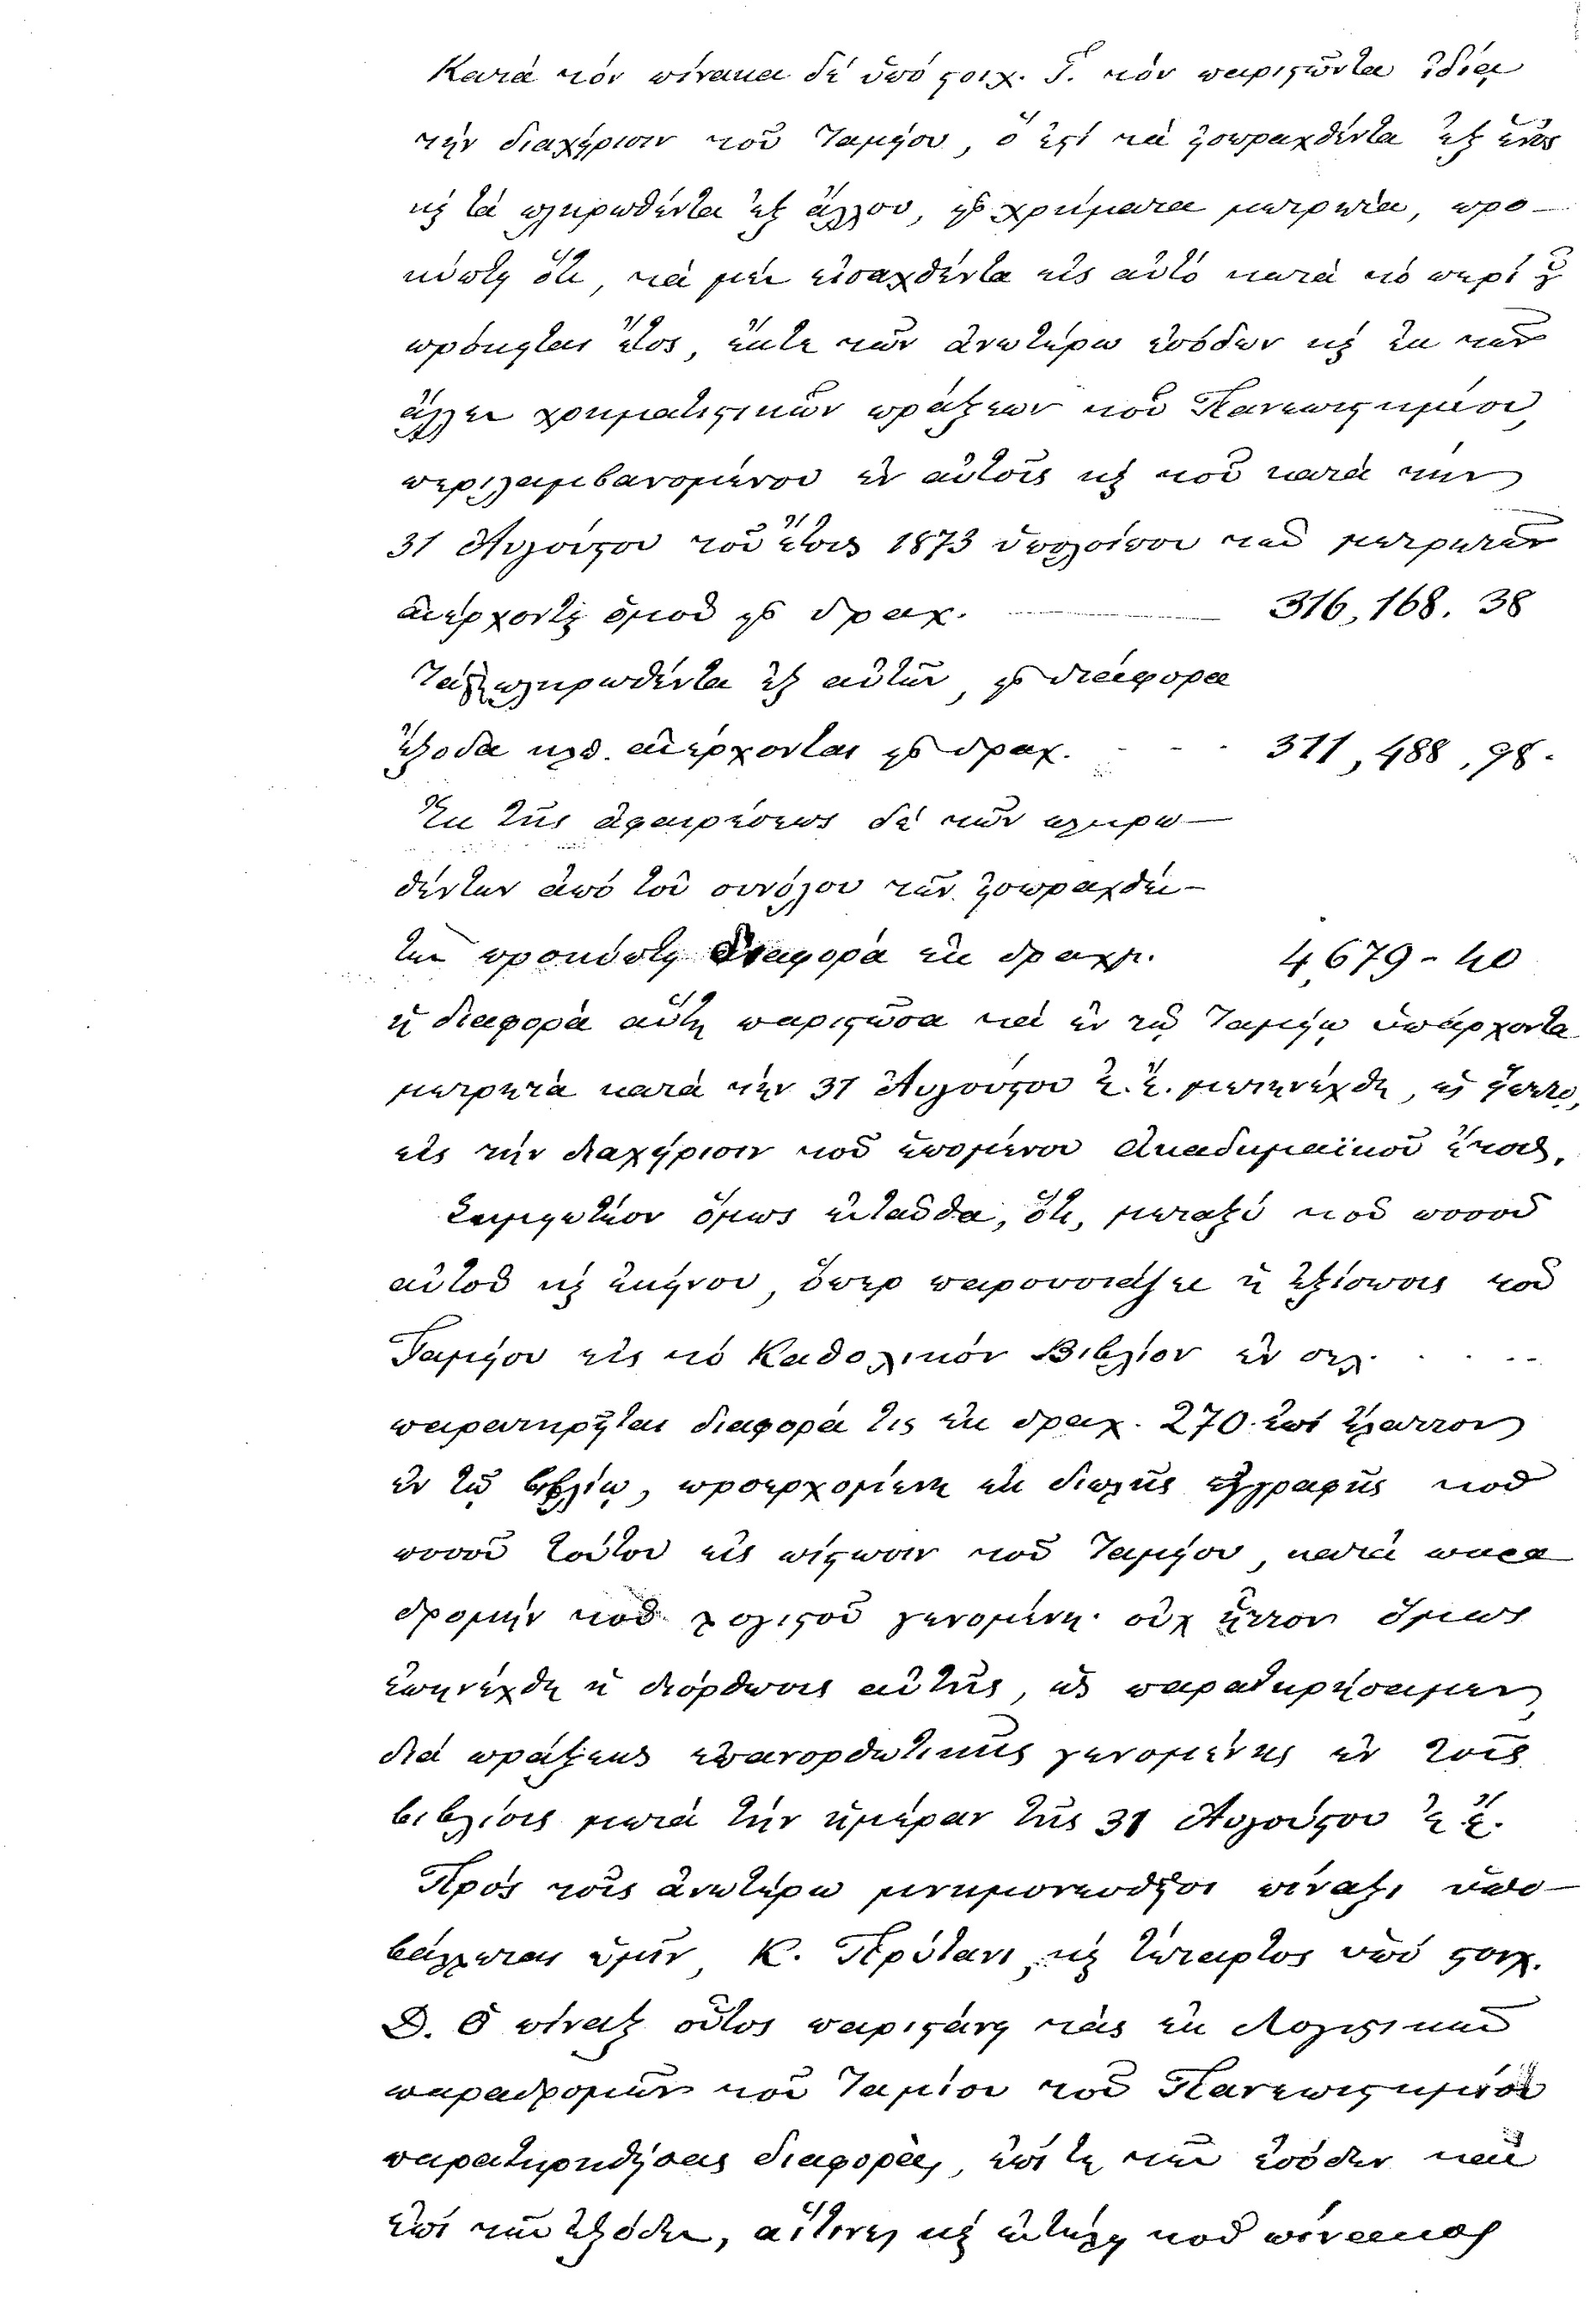 Κατὰ τὸν πίνακα δὲ ὑπὸ στοιχ. Γ. τὸν παριστῶντα ἰδίᾳ
τὴν διαχείρισιν τοῦ Ταμείου, ὅ ἐστι τὰ εἰσπραχθέντα ἐξ ἑνὸς
καὶ τὰ πληρωθέντα ἐξ ἄλλου, εἰς χρήματα μετρητά, προ-
κύπτει ὅτι, τὰ μὲν εἰσαχθέντα εἰς αὐτὸ κατὰ τὸ περὶ οὗ
πρόκειται ἔτος, ἔκ τε τῶν ἀνωτέρω ἐσόδων καὶ ἐκ τῶν
ἄλλων χρηματιστικῶν πράξεων τοῦ Πανεπιστημίου,
περιλαμβανομένου ἐν αὐτοῖς καὶ τοῦ κατὰ τὴν
31 Αὐγούστου τοῦ ἔτους 1873 ὑπολοίπου τῶν μετρητῶν
ἀνέρχονται ὁμοῦ εἰς δραχ. 316,168. 38
Τὰ δὲ πληρωθέντα ἐξ αὐτῶν, εἰς διάφορα
ἔξοδα κλπ. ἀνέρχονται εἰς δραχ. - - - 311,488,98.
Ἐκ τῆς ἀφαιρέσεως δὲ τῶν πληρω-
θέντων ἀπὸ τοῦ συνόλου τῶν εἰσπραχθέν-
των προκύπτει διαφορὰ ἐκ δραχμ. 4,679-40
ἡ διαφορὰ αὕτη παριστῶσα τὰ ἐν τῷ Ταμείῳ ὑπάρχοντα
μετρητὰ κατὰ τὴν 31 Αὐγούστου ἐ. ἔ. μετηνέχθη, ὡς
εἰς τὴν διαχείρισιν τοῦ ἑπομένου Ἀκαδημαϊκοῦ ἔτους.
Σημειωτέον ὅμως ἐνταῦθα, ὅτι, μεταξὺ τοῦ ποσοῦ
αὐτοῦ καὶ ἐκείνου, ὅπερ παρουσιάζει ἡ ἐξίσωσις τοῦ
Ταμείου εἰς τὸ Καθολικὸν Βιβλίον ἐν σελ. . . ..
παρατηρεῖται διαφορά τις ἐκ δραχ. 270 ἐπὶ ἔλαττον
ἐν τῷ βιβλίῳ, προερχομένη ἐκ διπλῆς ἐγγραφῆς τοῦ
ποσοῦ τούτου εἰς πίστωσιν τοῦ Ταμείου, κατὰ παρα
δρομὴν τοῦ λογιστοῦ γενομένη· οὐχ ἧττον ὅμως
ἐπηνέχθη ἡ διόρθωσις αὐτῆς, ὡς παρατηρήσαμεν,
διὰ πράξεως ἐπανορθωτικῆς γενομένης ἐν τοῖς
βιβλίοις μετὰ τὴν ἡμέραν τῆς 31 Αὐγούστου ἐ. ἔ.
Πρὸς τοῖς ἀνωτέρω μνημονευθεῖσι πίναξι ὑπο-
βάλλεται ὑμῖν, Κ. Πρύτανι, καὶ τέταρτος ὑπὸ στοιχ.
Δ. Ὁ πίναξ οὗτος παριστάνει τὰς ἐκ λογιστικῶν
παραδρομῶν τοῦ Ταμίου τοῦ Πανεπιστημίου
παρατηρηθείσας διαφοράς, ἐπί τε τῶν ἐσόδων καὶ
ἐπὶ τῶν ἐξόδων, αἵτινες καὶ ἐν τέλει τοῦ πίνακος